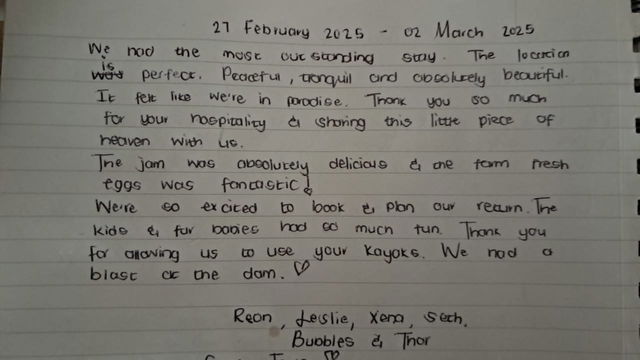 27 February 2025 - 02 March 2025
We had the most outstanding stay. The location
is perfect. Peaceful, tranquil and absolutely beautiful.
It felt like we're in paradise. Thank you so much
for your hospitality & sharing this little piece of
heaven with us.
The jam was absolutely delicious & the farm fresh
eggs was fantastic!
We're so excited to book & plan our return. The
kids & fur babies had so much fun. Thank you
for allowing us to use your kayaks. We had a
blast at the dam. ♡
Reon, Leslie, Xena, Seth,
Bubbles & Thor